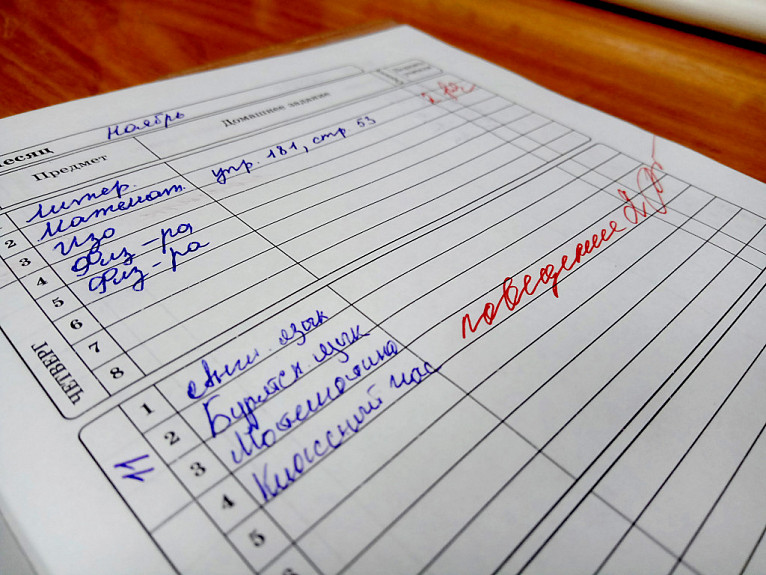 месяц Ноябрь
Предмет Домашнее задание
1 Литер. 2
2 Математ. упр. 181, стр 53
3 Изо
4 Физ-ра
5 Физ-ра
6
7
8
ЧЕТВЕРГ
11
1 Англ. язык поведение 2
2 Бурятск. язык
3 Математика
4 Классный час
5
6